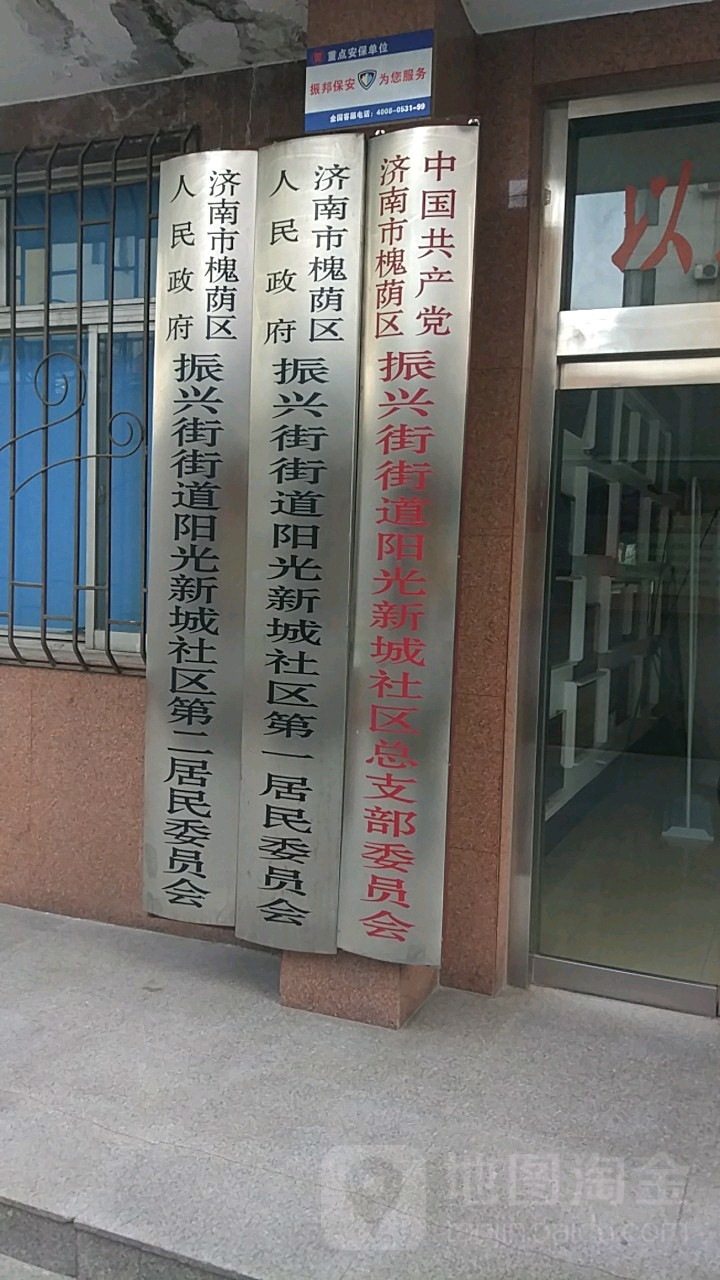 重点安保单位
振邦保安 为您服务
全国客服电话：4008-0531-99
中国共产党
济南市槐荫区
振兴街街道阳光新城社区总支部委员会
济南市槐荫区
人民政府
振兴街街道阳光新城社区第一居民委员会
济南市槐荫区
人民政府
振兴街街道阳光新城社区第二居民委员会
以
地图淘金